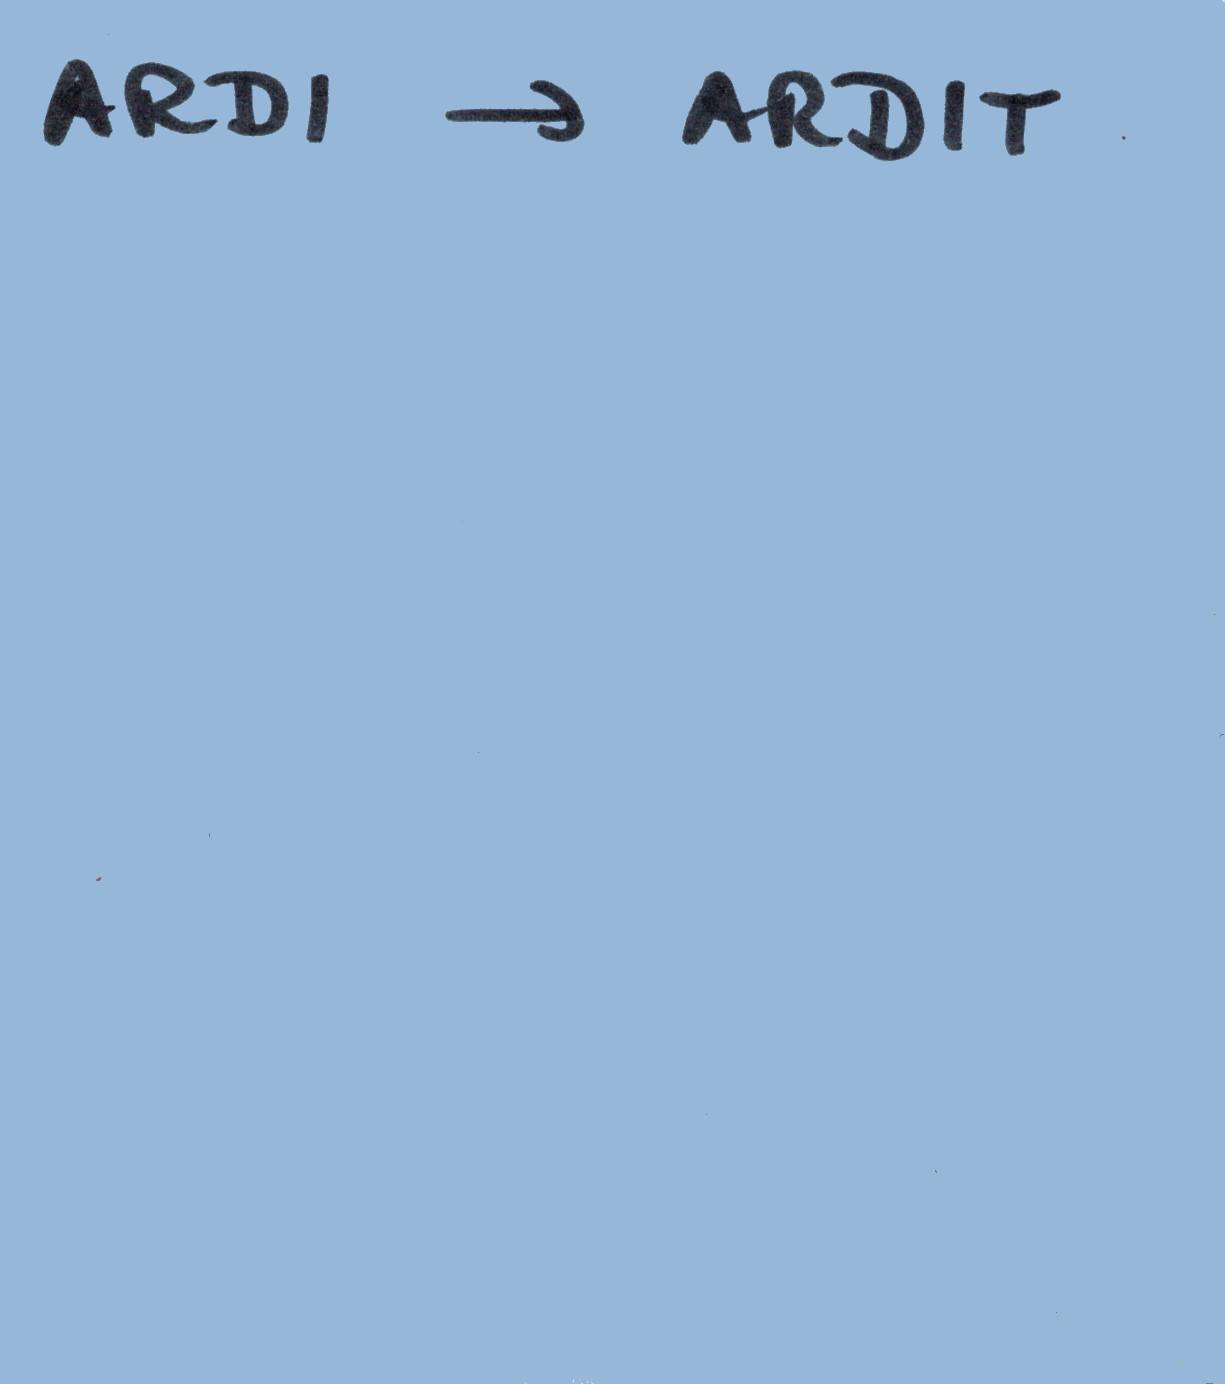 ARDI → ARDIT